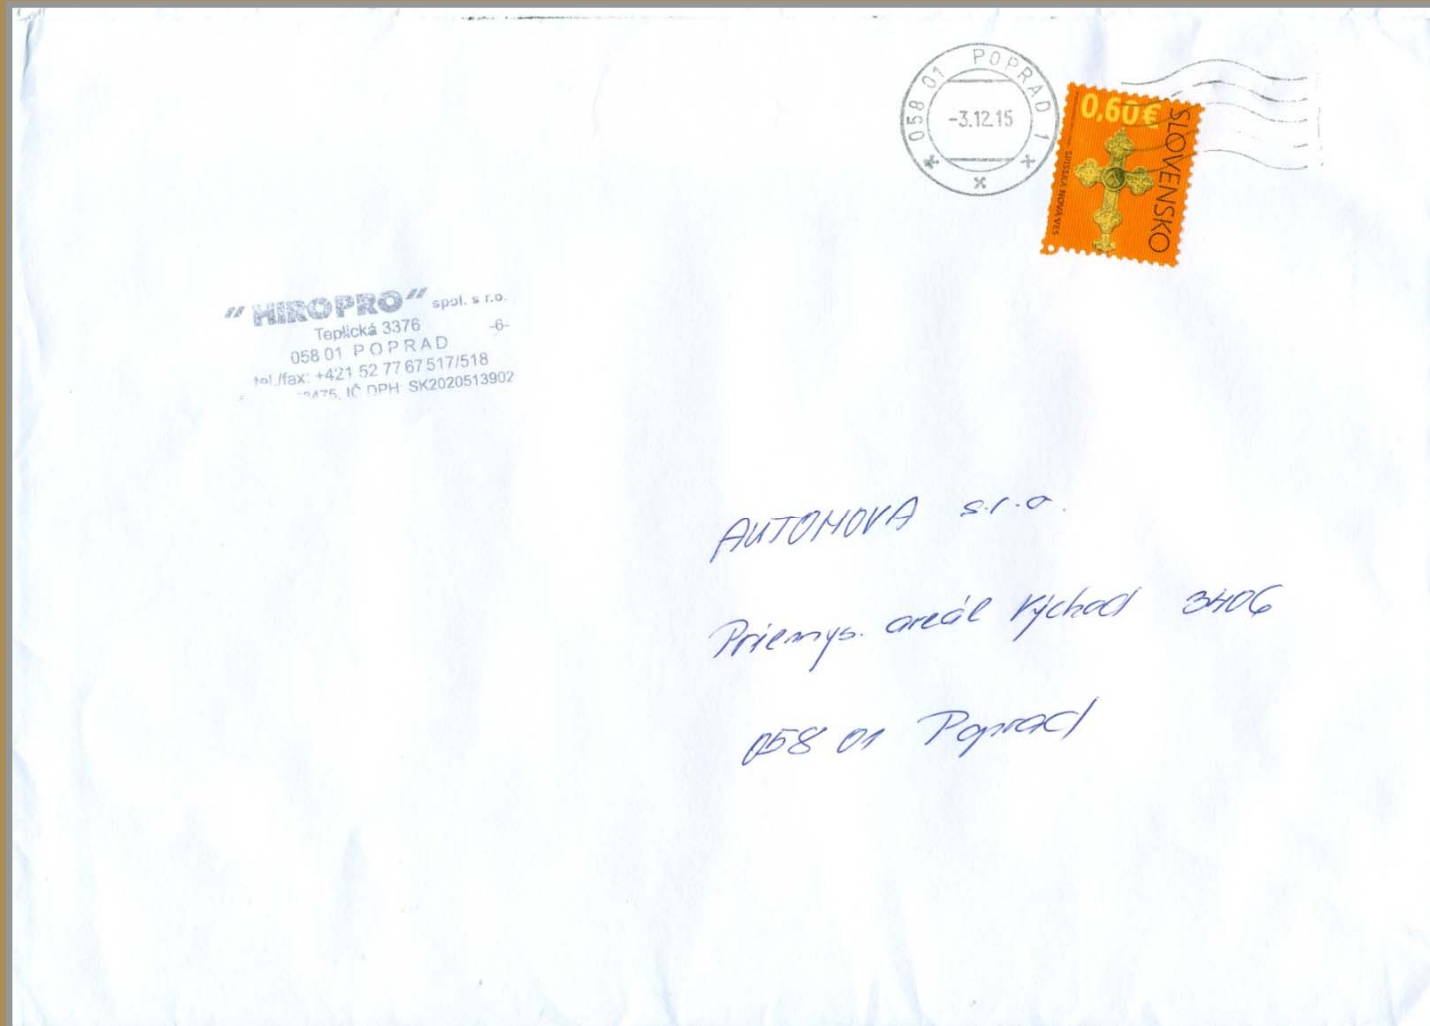 058 01 POPRAD 1
-3.12.15
0,60€
SLOVENSKO
SPIŠSKÁ NOVÁ VES
"HIROPRO" spol. s r.o.
Teplická 3376 -6-
058 01 POPRAD
tel./fax: +421 52 77 67 517/518
3475, IČ DPH: SK2020513902
AUTOMOVA s.r.o.
Priemys. areál Východ 3406
058 01 Poprad